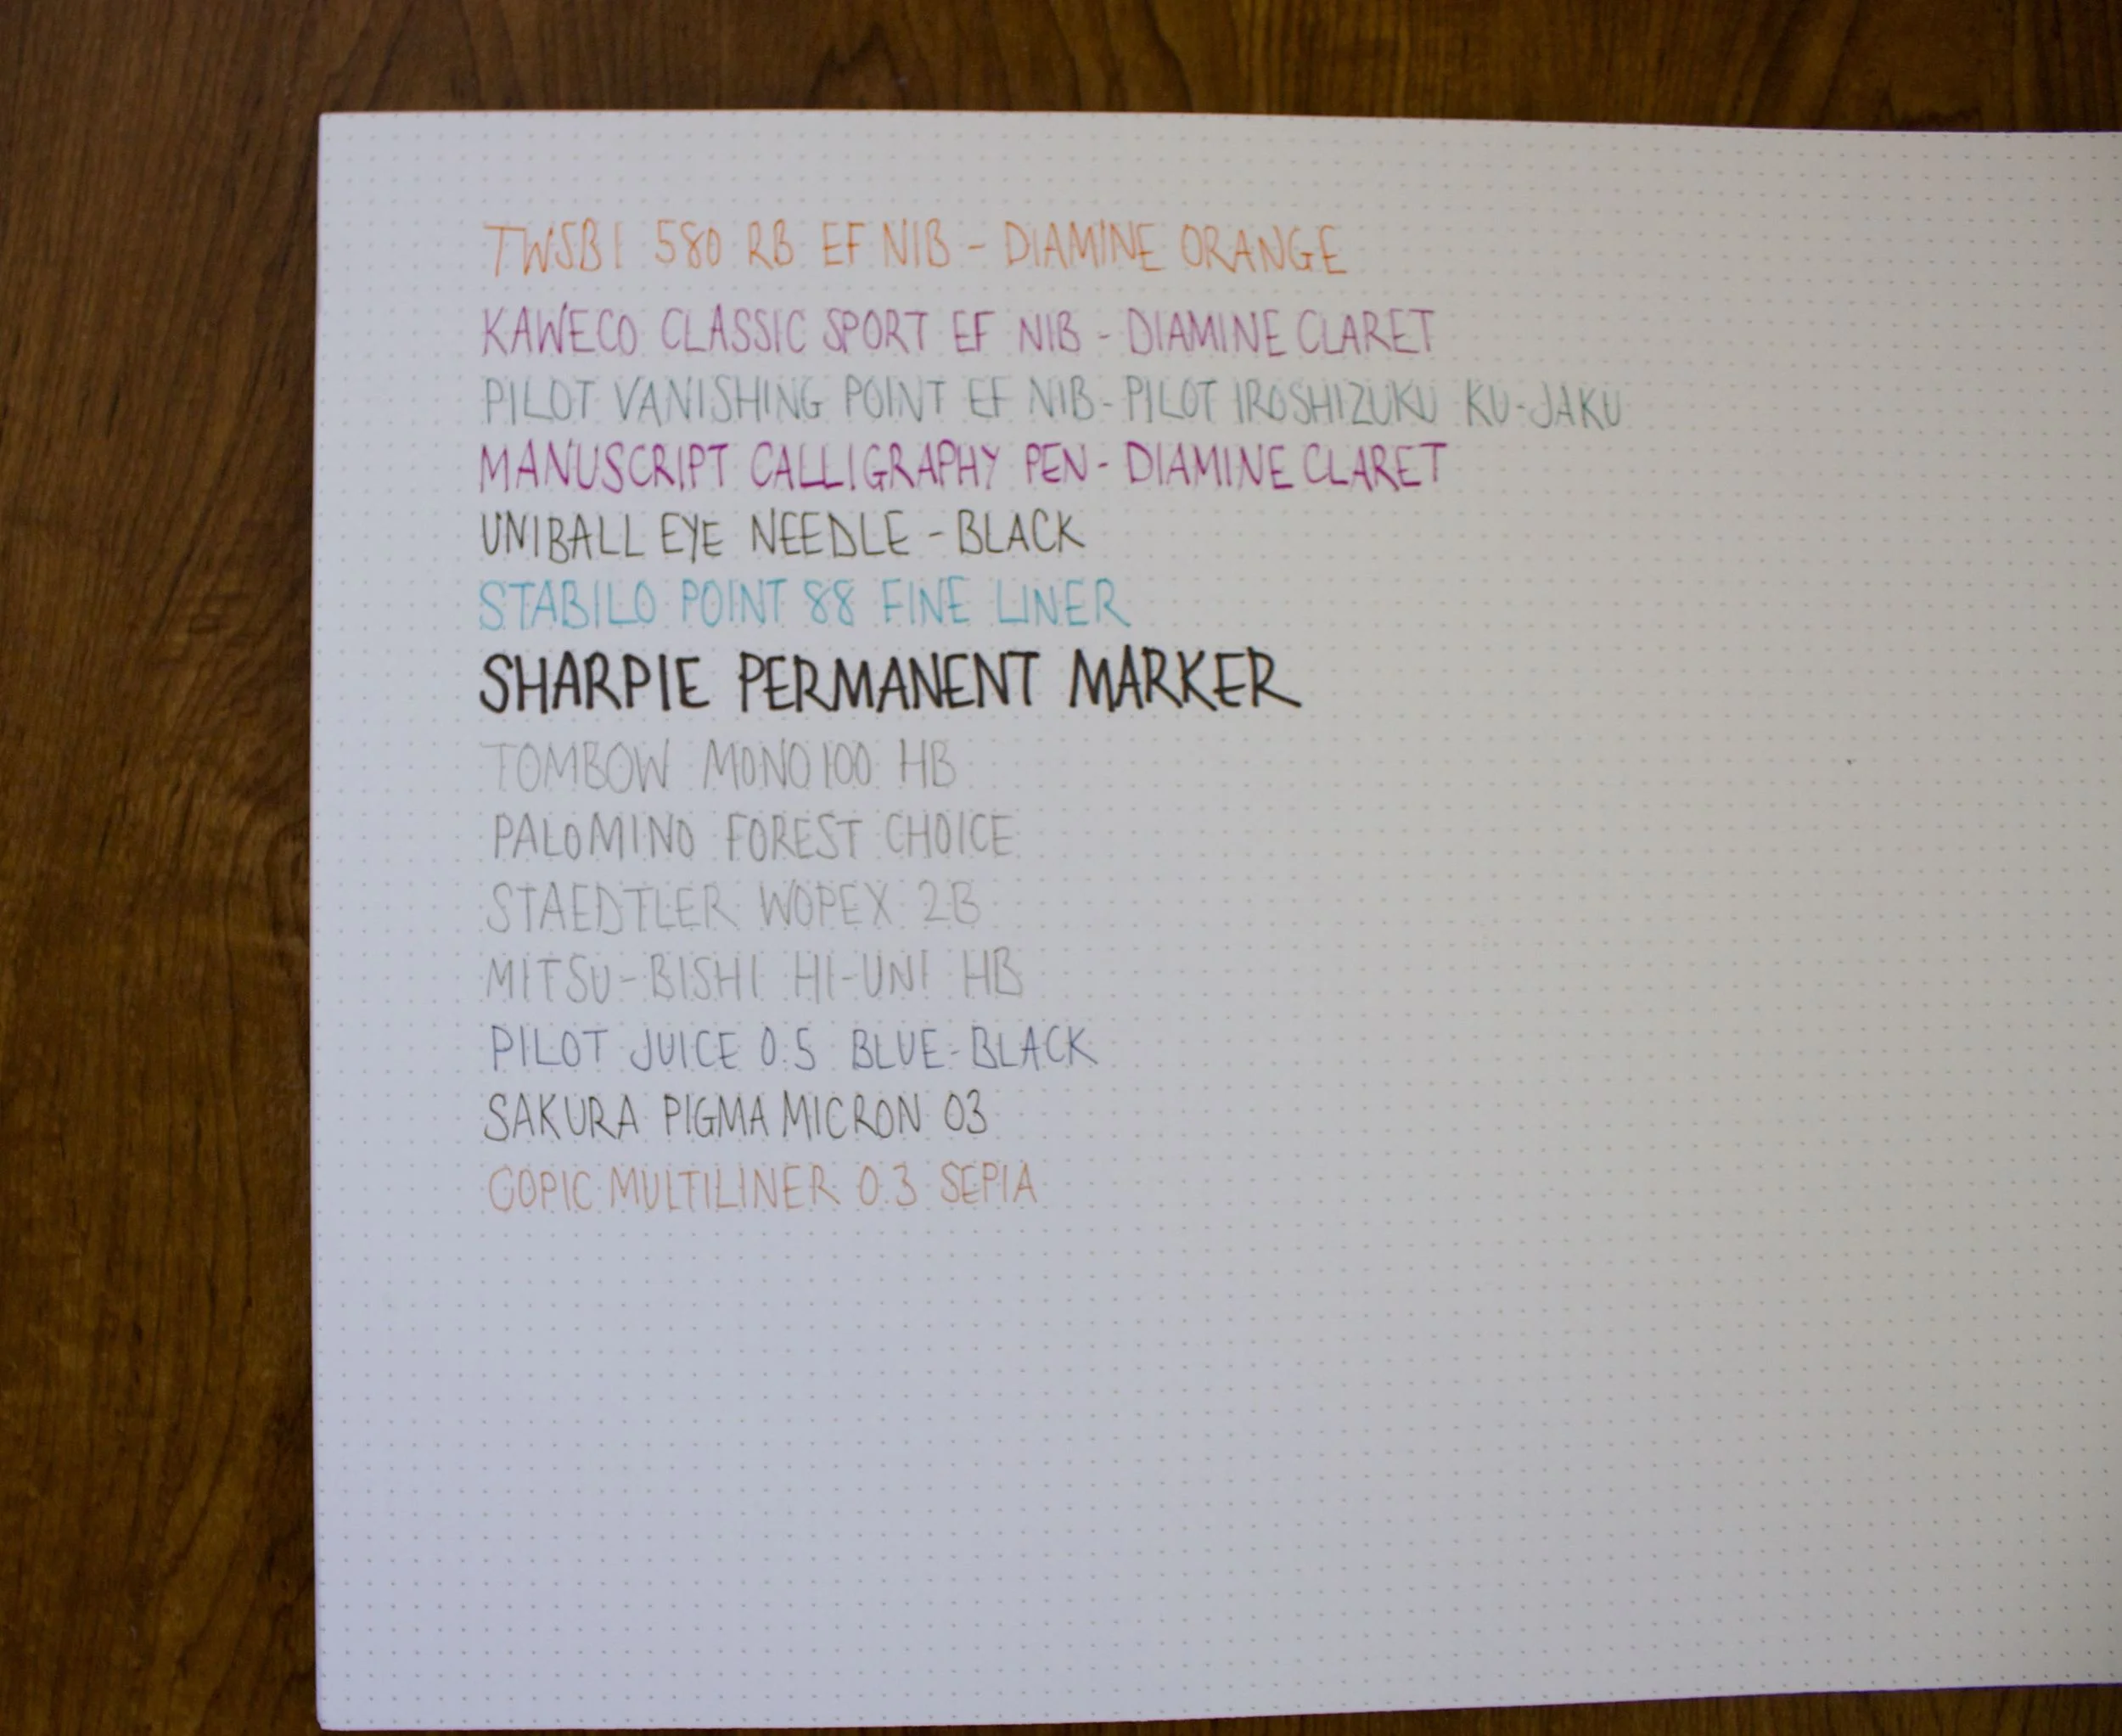 TWSBI 580 RB EF NIB - DIAMINE ORANGE
KAWECO CLASSIC SPORT EF NIB - DIAMINE CLARET
PILOT VANISHING POINT EF NIB - PILOT IROSHIZUKU KU-JAKU
MANUSCRIPT CALLIGRAPHY PEN - DIAMINE CLARET
UNIBALL EYE NEEDLE - BLACK
STABILO POINT 88 FINE LINER
SHARPIE PERMANENT MARKER
TOMBOW MONO 100 HB
PALOMINO FOREST CHOICE
STAEDTLER WOPEX 2B
MITSU-BISHI HI-UNI HB
PILOT JUICE 0.5 BLUE-BLACK
SAKURA PIGMA MICRON 03
COPIC MULTILINER 0.3 SEPIA